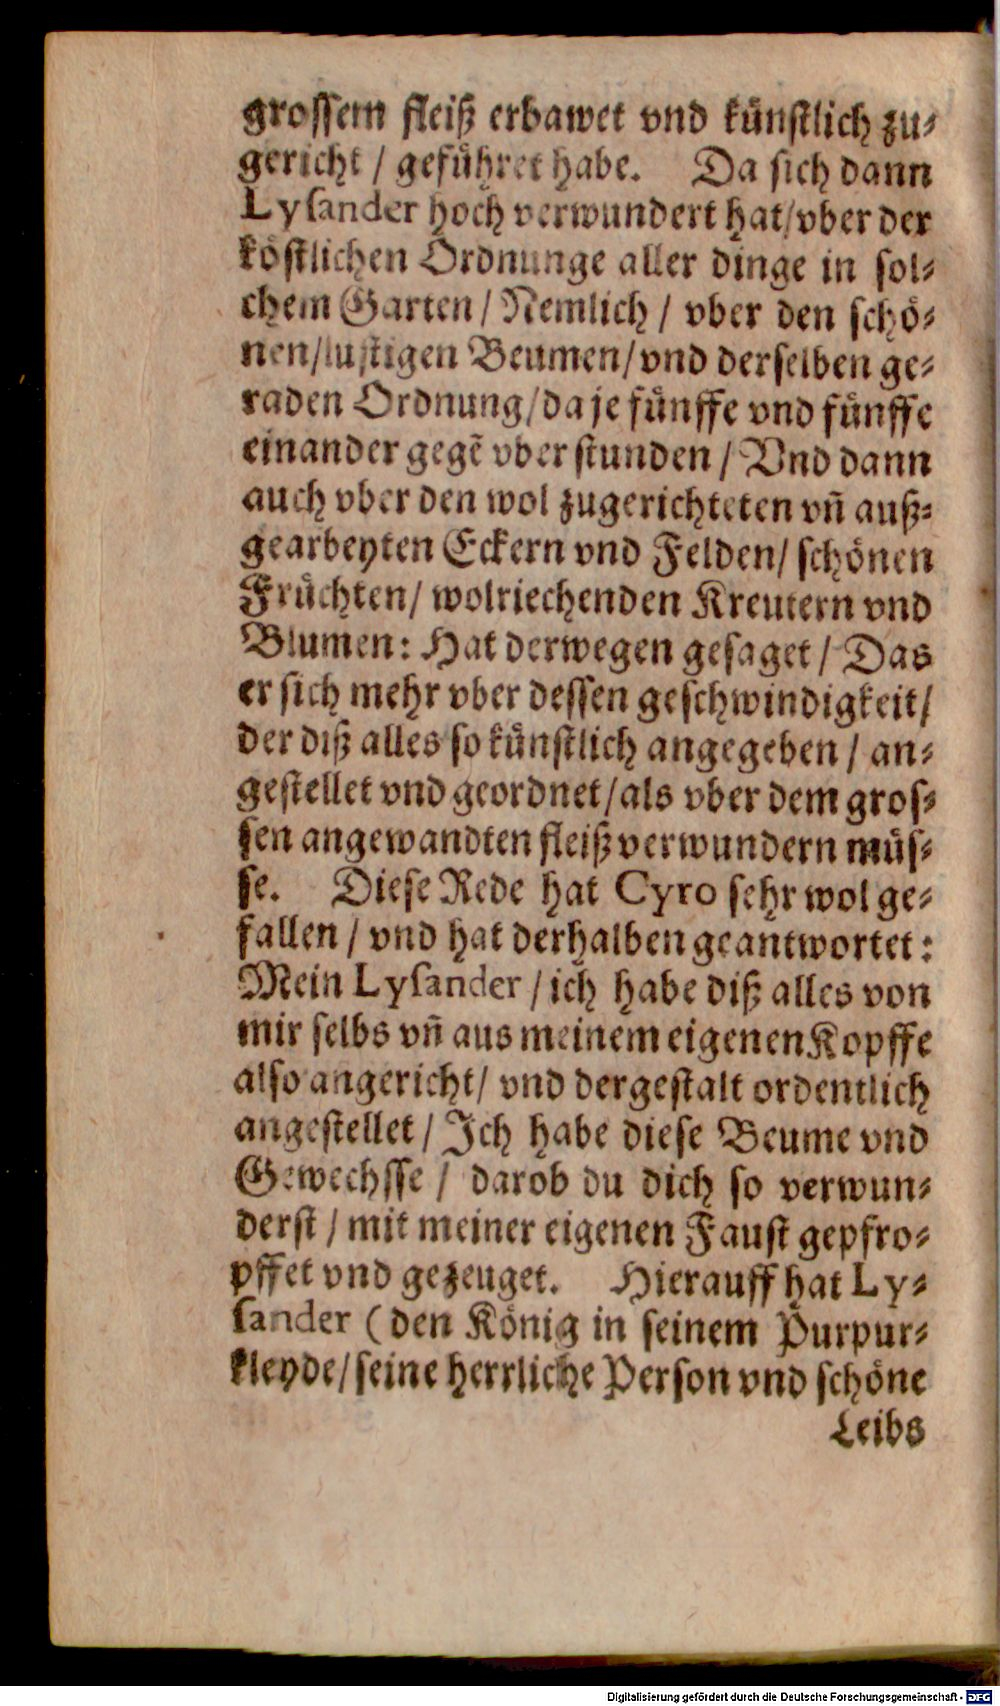 grossem fleiß erbawet vnd künstlich zu-
gericht / geführet habe. Da sich dann
Lysander hoch verwundert hat/vber der
köstlichen Ordnunge aller dinge in sol-
chem Garten / Nemlich / vber den schö-
nen/lustigen Beumen/vnd derselben ge-
raden Ordnung/da je fünffe vnd fünffe
einander gegẽ vber stunden / Vnd dann
auch vber den wol zugerichteten vñ auß-
gearbeyten Eckern vnd Felden/ schönen
Früchten/ wolriechenden Kreutern vnd
Blumen: Hat derwegen gesaget / Das
er sich mehr vber dessen geschwindigkeit/
der diß alles so künstlich angegeben / an-
gestellet vnd geordnet/als vber dem gros-
sen angewandten fleiß verwundern müs-
se. Diese Rede hat Cyro sehr wol ge-
fallen / vnd hat derhalben geantwortet:
Mein Lysander / ich habe diß alles von
mir selbs vñ aus meinem eigenen Kopffe
also angericht/ vnd dergestalt ordentlich
angestellet / Ich habe diese Beume vnd
Gewechsse / darob du dich so verwun-
derst / mit meiner eigenen Faust gepfro-
pffet vnd gezeuget. Hierauff hat Ly-
sander (den König in seinem Purpur-
kleyde/seine herrliche Person vnd schöne
Leibs
Digitalisierung gefördert durch die Deutsche Forschungsgemeinschaft - DFG